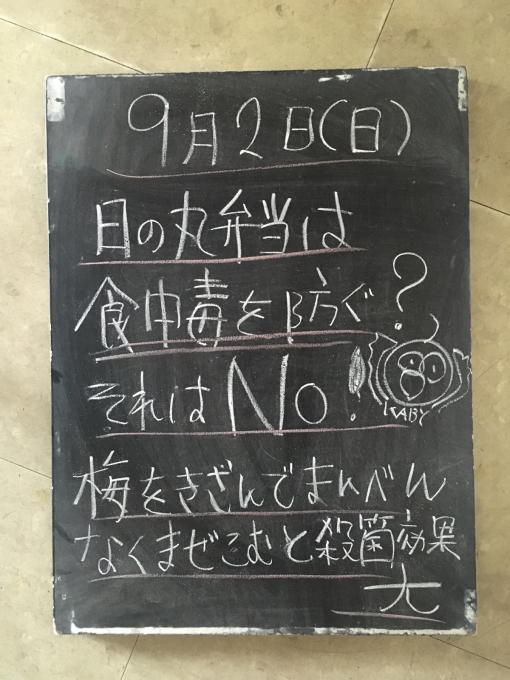 9月2日(日)
日の丸弁当は
食中毒を防ぐ?
それはNo!
KABY
梅をきざんでまんべん
なくまぜこむと殺菌効果
大